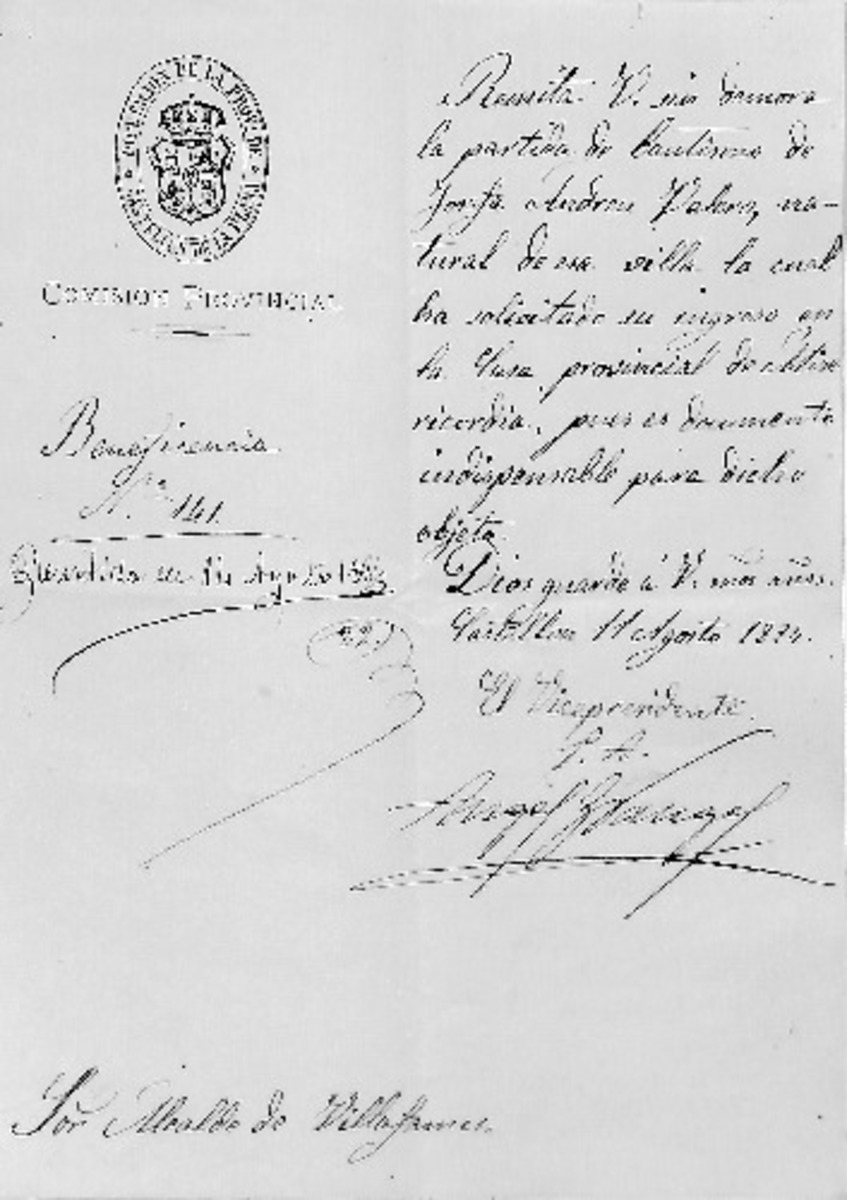 DIPUTACION DE LA PROVª DE
CASTELLON DE LA PLANA
COMISION PROVINCIAL
Beneficencia
N.º 141.
en 14 Agosto
Remita V. sin demora
la partida de bautismo de
Josefa Andreu Valero, na-
tural de esa villa la cual
ha solicitado su ingreso en
la Casa provincial de Mise
ricordia, pues es documento
indispensable para dicho
objeto.
Dios guarde á V. mos años.
Castellon 11 Agosto 1894.
El Vicepresidente.
P. A.
Angel
Sor Alcalde de Villafamés.